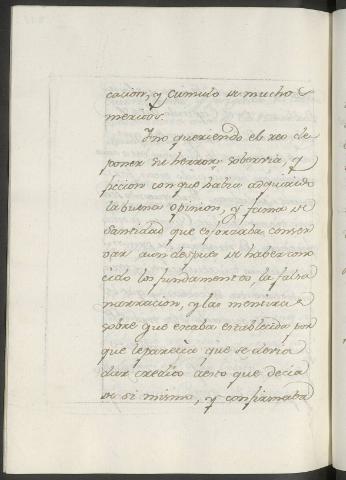 cacion, y cumulo de muchos
meritos.
Y no queriendo el reo de-
poner su herror, sobervia, y
ficcion con que havia adquirido
la buena opinion, y fama de
Santidad que esforzaba conser
var aun despues de haber cono
cido los fundamentos, la falsa
narracion, y las mentiras
sobre que estaba establecida por
que le parecia que se devia
dar credito a esto que decia
de si mismo, y confirmaba